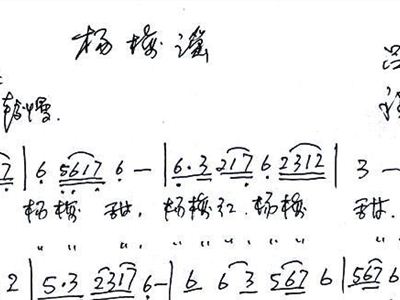 杨梅谣
7 | 6 5617 6 — | 6·3 217 6 2312 | 3 —
杨梅 甜, 杨梅红, 杨梅 甜.
" " " " " " " "
2 | 5·3 2317 6 — | 6 6 3 567 6 | 567 6